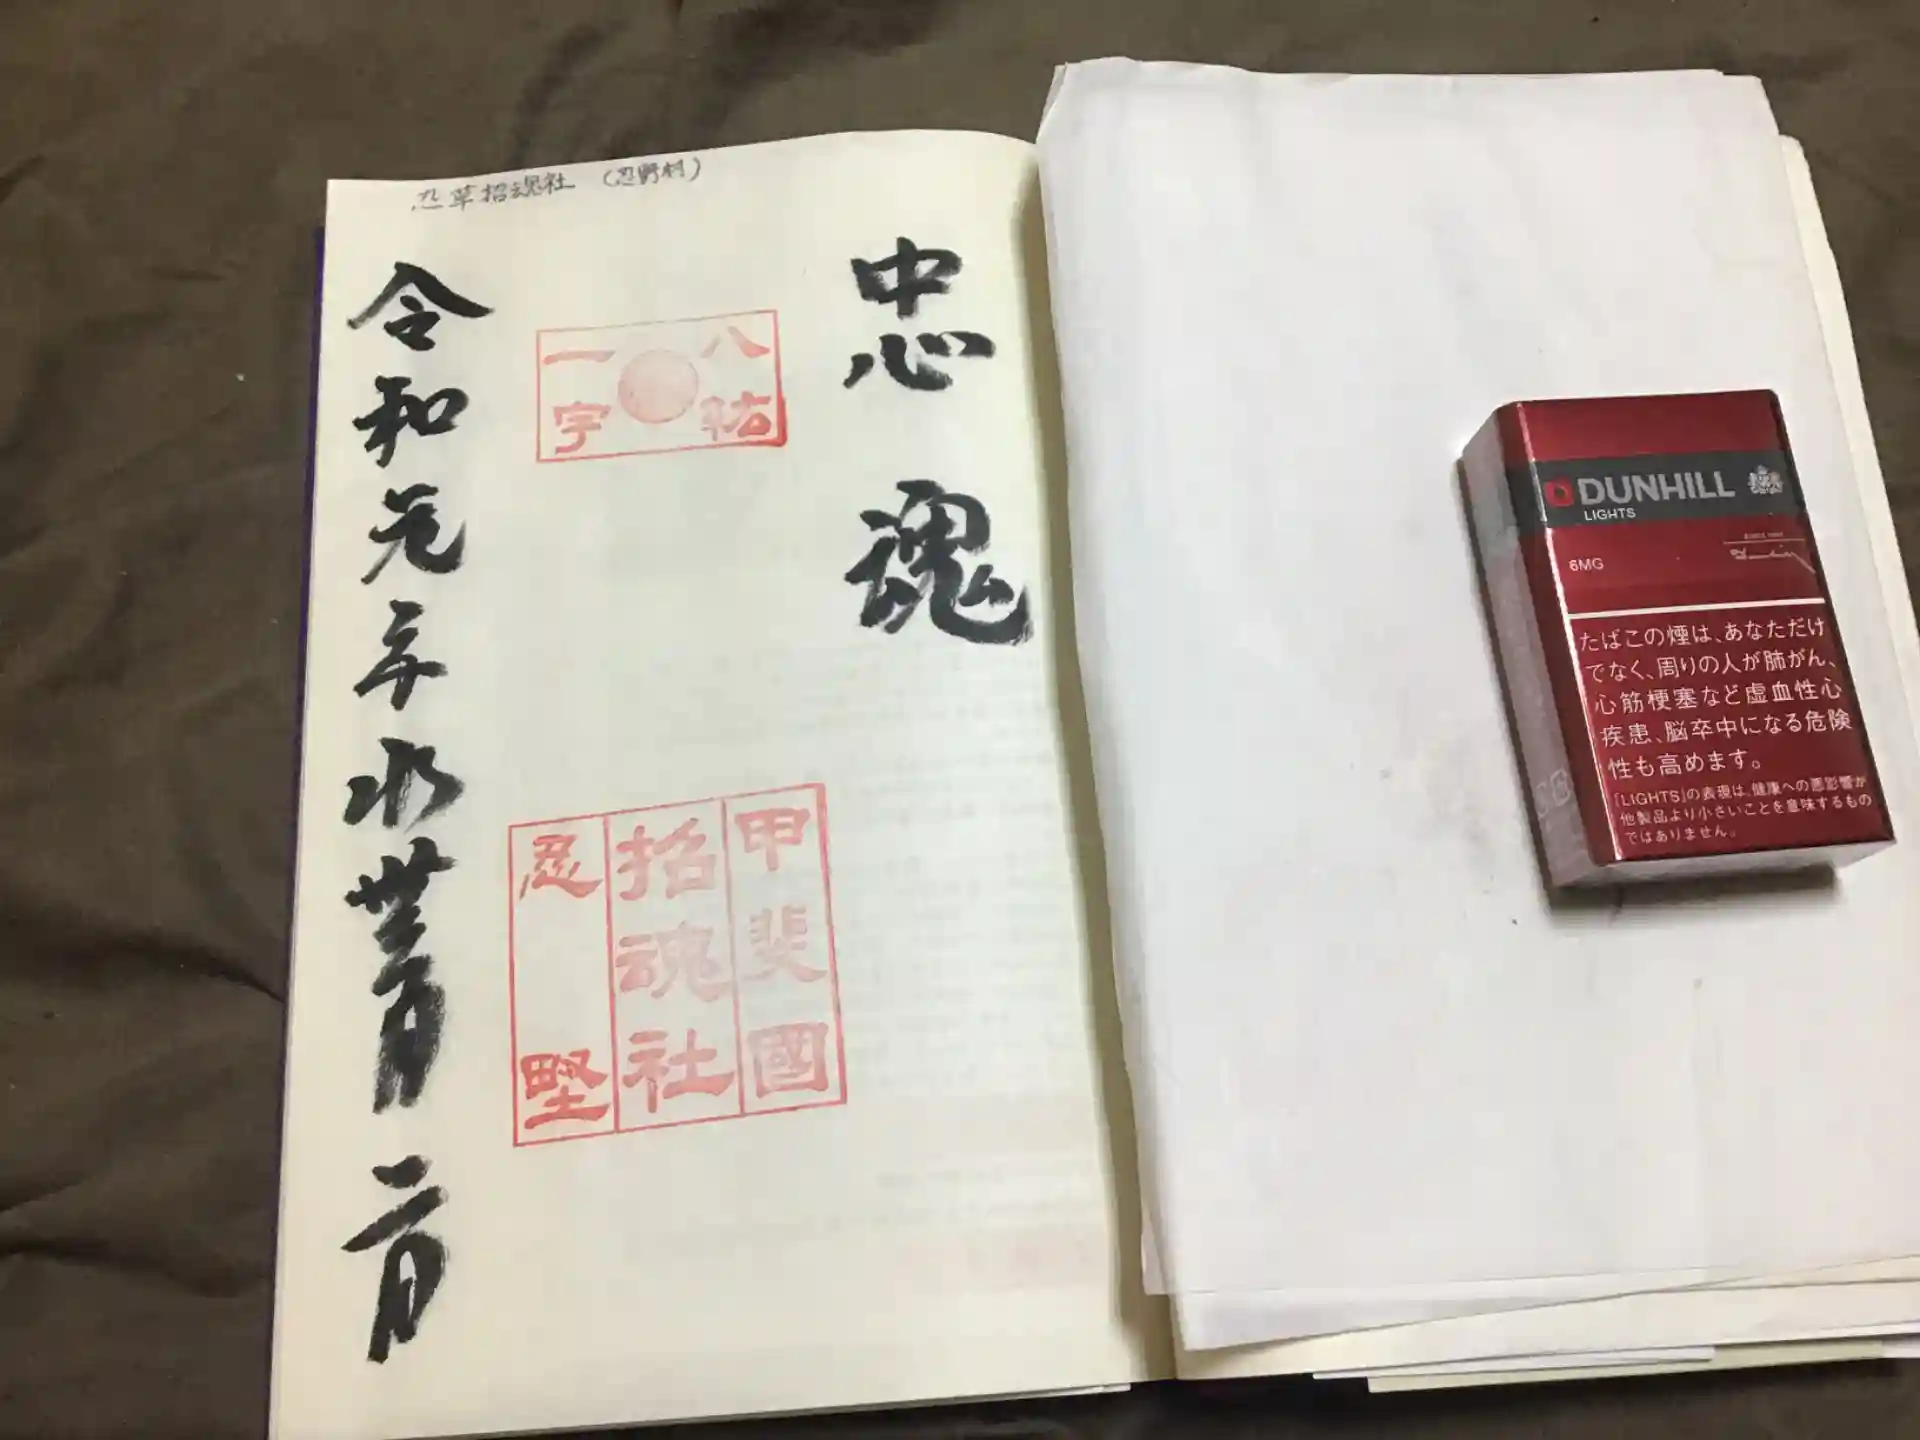 忍草招魂社 (忍野村)
忠魂
八紘
一宇
甲斐國
招魂社
忍野
令和元年水無月二日
DUNHILL
LIGHTS
6MG
たばこの煙は、あなただけ
でなく、周りの人が肺がん、
心筋梗塞など虚血性心
疾患、脳卒中になる危険
性も高めます。
「LIGHTS」の表現は、健康への悪影響が
他製品より小さいことを意味するもの
ではありません。